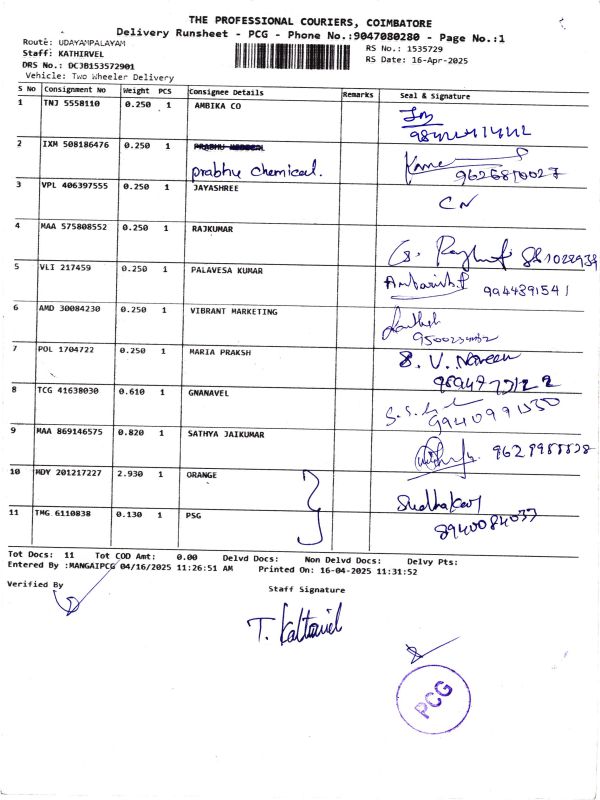 THE PROFESSIONAL COURIERS, COIMBATORE
Delivery Runsheet - PCG - Phone No.:9047080280 - Page No.:1
Route: UDAYAMPALAYAM
Staff: KATHIRVEL
DRS No.: DCJB153572901
Vehicle: Two Wheeler Delivery
RS No.: 1535729
RS Date: 16-Apr-2025
S No Consignment No Weight PCS Consignee Details Remarks Seal & Signature
1 TNJ 5558110 0.250 1 AMBIKA CO
2 IXM 508186476 0.250 1 PRABHU
prabhu chemical. 9626810027
3 VPL 406397555 0.250 1 JAYASHREE CN
4 MAA 575808552 0.250 1 RAJKUMAR
5 VLI 217459 0.250 1 PALAVESA KUMAR 9944891541
6 AMD 30084230 0.250 1 VIBRANT MARKETING
7 POL 1704722 0.250 1 MARIA PRAKSH S. V. Naveen
8 TCG 41638030 0.610 1 GNANAVEL
9 MAA 869146575 0.820 1 SATHYA JAIKUMAR
10 MDY 201217227 2.930 1 ORANGE Sudhakar
11 TMG 6110838 0.130 1 PSG 8940084037
Tot Docs: 11 Tot COD Amt: 0.00 Delvd Docs: Non Delvd Docs: Delvy Pts:
Entered By :MANGAIPCG 04/16/2025 11:26:51 AM Printed On: 16-04-2025 11:31:52
Verified By
Staff Signature
T. Kathirvel
PCG